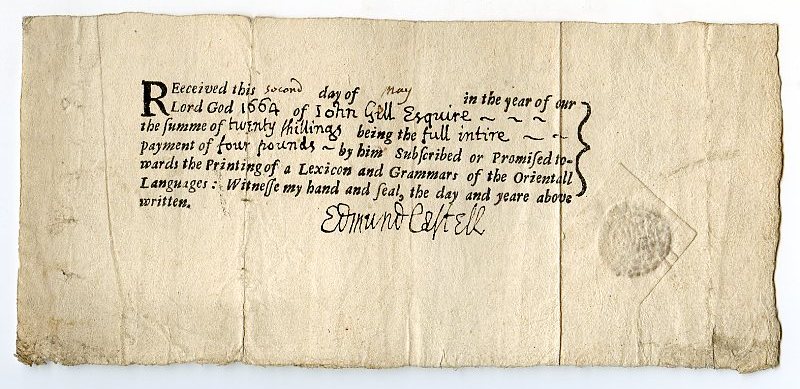 REeceived this second day of May in the year of our
Lord God 1664 of John Gill Esquire ~ ~ ~
the summe of twenty shillings being the full intire ~ ~
payment of four pounds ~ by him Subscribed or Promised to-
wards the Printing of a Lexicon and Grammars of the Orientall
Languages: Witnesse my hand and seal, the day and yeare above
written.
Edmund Castell